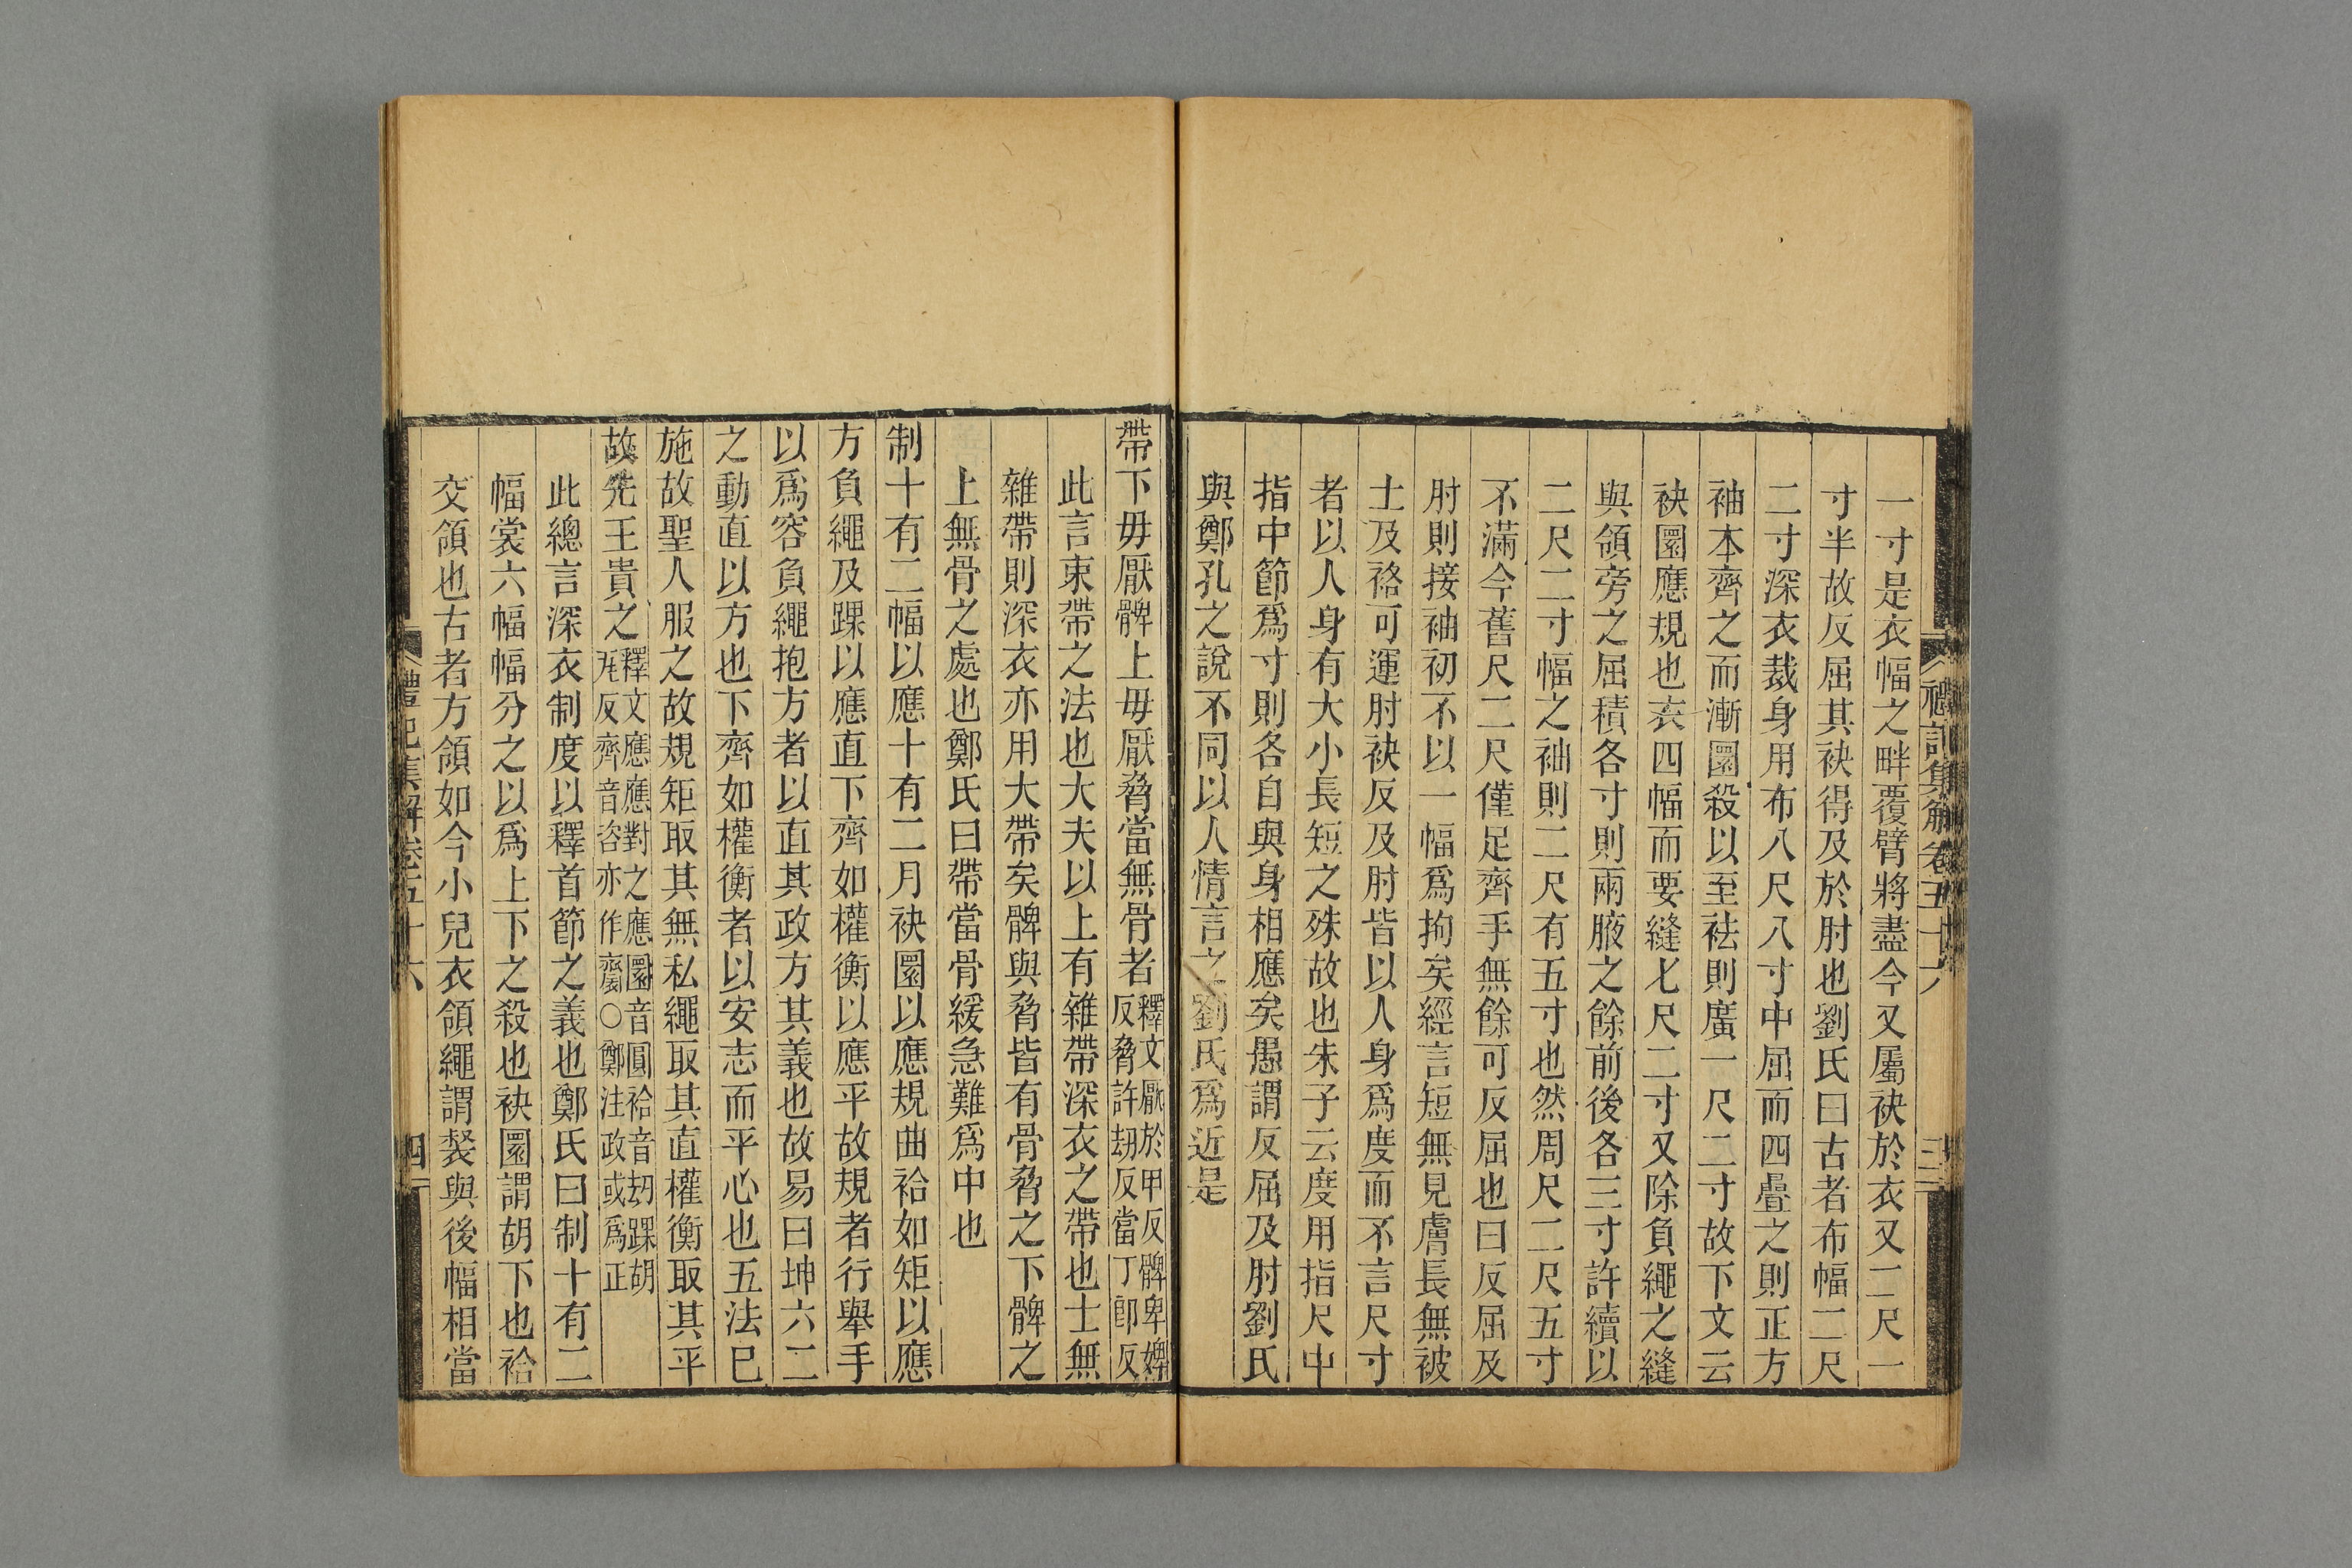 禮記集解卷五十六
三
一寸是衣幅之畔覆臂將盡今又屬袂於衣又二尺一
寸半故反屈其袂得及於肘也劉氏曰古者布幅二尺
二寸深衣裁身用布八尺八寸中屈而四疊之則正方
袖本齊之而漸圜殺以至袪則廣一尺二寸故下文云
袂圜應規也衣四幅而要縫七尺二寸又除負繩之縫
與領旁之屈積各寸則兩腋之餘前後各三寸許續以
二尺二寸幅之袖則二尺有五寸也然周尺二尺五寸
不滿今舊尺二尺僅足齊手無餘可反屈也曰反屈及
肘則接袖初不以一幅爲拘矣經言短無見膚長無被
土及袼可運肘袂反及肘皆以人身爲度而不言尺寸
者以人身有大小長短之殊故也朱子云度用指尺中
指中節爲寸則各自與身相應矣愚謂反屈及肘劉氏
與鄭孔之說不同以人情言之劉氏爲近是
帶下毋厭髀上毋厭脅當無骨者釋文厭於甲反髀卑婢
反脅許劫反當丁郎反
此言束帶之法也大夫以上有雜帶深衣之帶也士無
雜帶則深衣亦用大帶矣髀與脅皆有骨脅之下髀之
上無骨之處也鄭氏曰帶當骨緩急難爲中也
制十有二幅以應十有二月袂圜以應規曲袷如矩以應
方負繩及踝以應直下齊如權衡以應平故規者行舉手
以爲容負繩抱方者以直其政方其義也故易曰坤六二
之動直以方也下齊如權衡者以安志而平心也五法已
施故聖人服之故規矩取其無私繩取其直權衡取其平
故先王貴之釋文應應對之應圜音圓袷音劫踝胡
瓦反齊音咨亦作齎○鄭注政或爲正
此總言深衣制度以釋首節之義也鄭氏曰制十有二
幅裳六幅幅分之以爲上下之殺也袂圜謂胡下也袷
交領也古者方領如今小兒衣領繩謂裻與後幅相當
禮記集解卷五十六
四